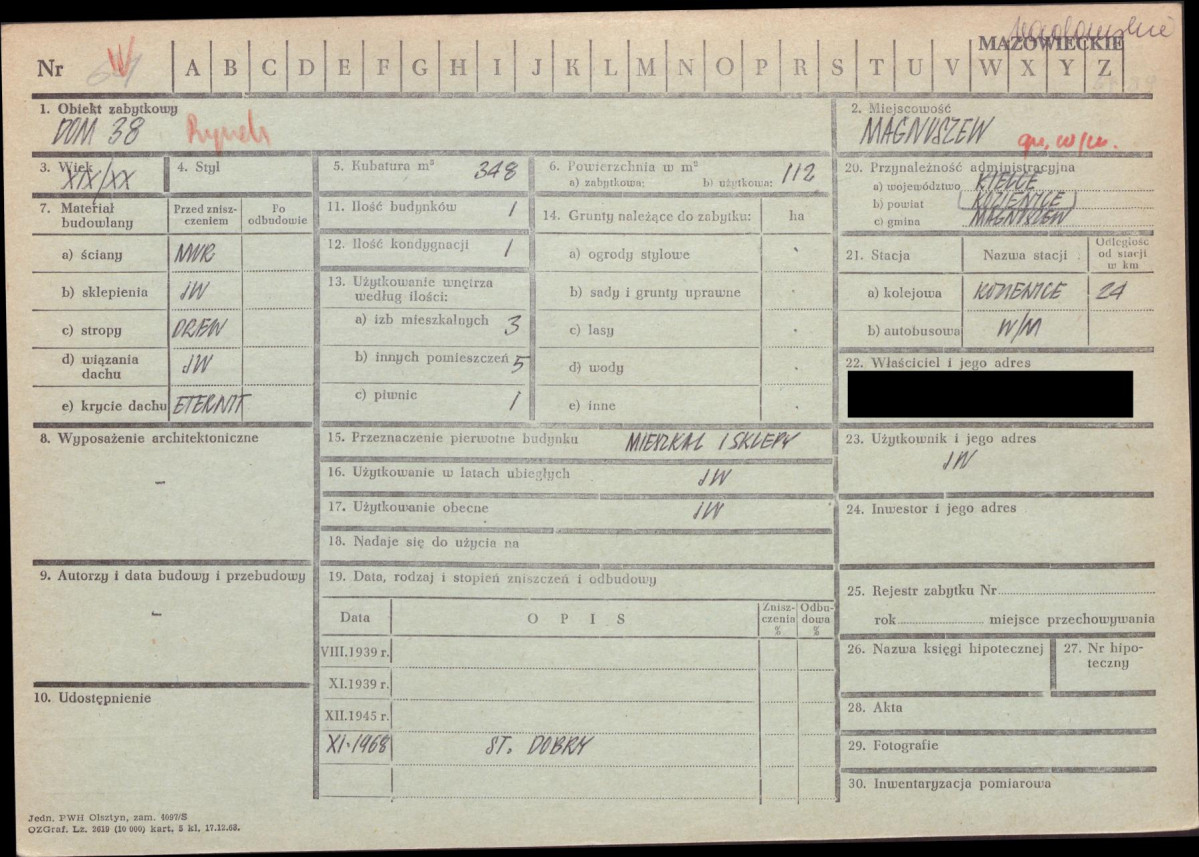 MAZOWIECKIE
Nr A B C D E F G H I J K L M N O P R S T U V W X Y Z
1. Obiekt zabytkowy
DOM 38 Rynek
2. Miejscowość
MAGNUSZEW
3. Wiek
XIX/XX
4. Styl
5. Kubatura m³ 348
6. Powierzchnia w m²
a) zabytkowa: b) użytkowa: 112
20. Przynależność administracyjna
a) województwo KIELCE
b) powiat KOZIENICE
c) gmina MAGNUSZEW
7. Materiał budowlany
Przed zniszczeniem
Po odbudowie
a) ściany MUR
b) sklepienia JW
c) stropy DREW
d) wiązania dachu JW
e) krycie dachu ETERNIT
11. Ilość budynków 1
12. Ilość kondygnacji 1
13. Użytkowanie wnętrza według ilości:
a) izb mieszkalnych 3
b) innych pomieszczeń 5
c) piwnic 1
14. Grunty należące do zabytku: ha
a) ogrody stylowe
b) sady i grunty uprawne
c) lasy
d) wody
e) inne
21. Stacja Nazwa stacji Odległość od stacji w km
a) kolejowa KOZIENICE 24
b) autobusowa W/M
22. Właściciel i jego adres
8. Wyposażenie architektoniczne
-
15. Przeznaczenie pierwotne budynku MIESZKAL I SKLEPY
16. Użytkowanie w latach ubiegłych JW
17. Użytkowanie obecne JW
18. Nadaje się do użycia na
23. Użytkownik i jego adres
JW
24. Inwestor i jego adres
9. Autorzy i data budowy i przebudowy
-
19. Data, rodzaj i stopień zniszczeń i odbudowy
Data OPIS Zniszczenia % Odbudowa %
VIII.1939 r.
XI.1939 r.
XII.1945 r.
XI.1968 ST. DOBRY
10. Udostępnienie
25. Rejestr zabytku Nr
rok miejsce przechowywania
26. Nazwa księgi hipotecznej
27. Nr hipoteczny
28. Akta
29. Fotografie
30. Inwentaryzacja pomiarowa
Jedn. PWH Olsztyn, zam. 4097/S
OZGraf. Lz. 2619 (10 000) kart. 5 kl. 17.12.68.